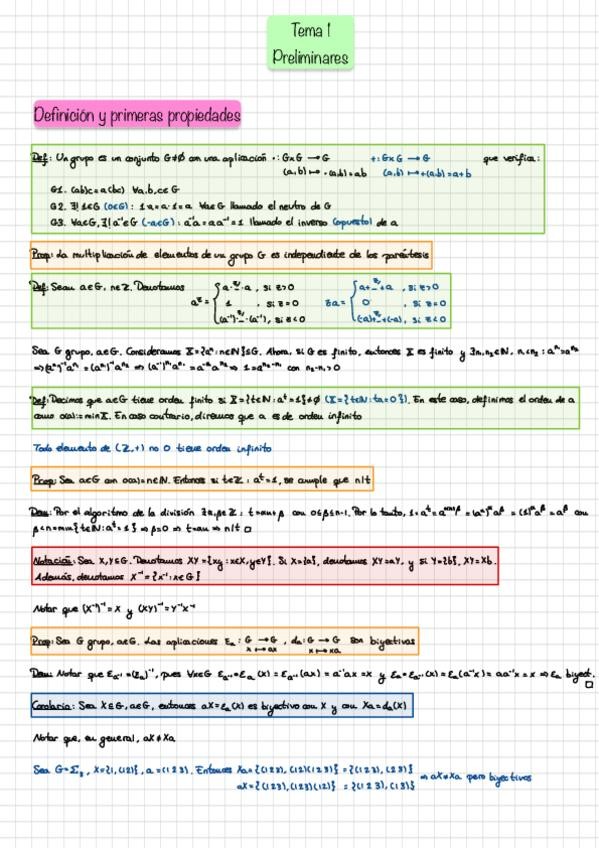 Tema 1
Preliminares
Definición y primeras propiedades
Def: Un grupo es un conjunto G≠∅ con una aplicación ·: G×G → G   +: G×G → G   que verifica:
(a,b) ↦ ·(a,b)=ab   (a,b) ↦ +(a,b)=a+b
G1. (ab)c=a(bc) ∀a,b,c∈G
G2. ∃! 1∈G (0∈G) : 1·a=a·1=a ∀a∈G llamado el neutro de G
G3. ∀a∈G,∃! a⁻¹∈G (-a∈G) : a⁻¹a=aa⁻¹=1 llamado el inverso (opuesto) de a
Prop: La multiplicación de elementos de un grupo G es independiente de los paréntesis
Def: Sean a∈G, n∈Z. Denotamos aᶻ = { a·...·a , si z>0   za = { a+...+a , si z>0
1 , si z=0   0 , si z=0
(a⁻¹)·...·(a⁻¹), si z<0   (-a)+...+(-a), si z<0
Sea G grupo, a∈G. Consideramos X={aⁿ:n∈N}⊆G. Ahora, si G es finito, entonces X es finito y ∃n₁,n₂∈N, n₁<n₂ : aⁿ¹=aⁿ²
⇒ 1=aⁿ²⁻ⁿ¹ con n₂-n₁>0
Def: Decimos que a∈G tiene orden finito si X={t∈N:aᵗ=1}≠∅ (X={t∈N:ta=0}). En este caso, definimos el orden de a
como o(a):=minX. En caso contrario, diremos que a es de orden infinito
Todo elemento de (Z,+) no 0 tiene orden infinito
Prop: Sea a∈G con o(a)=n∈N. Entonces si t∈Z : aᵗ=1, se cumple que n|t
Dem: Por el algoritmo de la división ∃α,β∈Z : t=αn+β con 0≤β≤n-1. Por lo tanto, 1=aᵗ=aᵅⁿ⁺ᵝ=(aⁿ)ᵅaᵝ=(1)ᵅaᵝ=aᵝ con
β<n=min{t∈N:aᵗ=1} ⇒ β=0 ⇒ t=αn ⇒ n|t □
Notación: Sea X,Y⊆G. Denotamos XY={xy:x∈X,y∈Y}. Si X={a}, denotamos XY=aY, y si Y={b}, XY=Xb.
Además, denotamos X⁻¹={x⁻¹:x∈G}
Notar que (X⁻¹)⁻¹=X y (XY)⁻¹=Y⁻¹X⁻¹
Prop: Sea G grupo, a∈G. Las aplicaciones εₐ: G → G , dₐ: G → G son biyectivas
x ↦ ax   x ↦ xa
Dem: Notar que εₐ⁻¹=(εₐ)⁻¹, pues ∀x∈G εₐ⁻¹∘εₐ(x)=εₐ⁻¹(ax)=a⁻¹ax=x y εₐ∘εₐ⁻¹(x)=εₐ(a⁻¹x)=aa⁻¹x=x ⇒ εₐ biyect.
□
Corolario: Sea X⊆G, a∈G, entonces aX=εₐ(X) es biyectivo con X y con Xa=dₐ(X)
Notar que, en general, aX≠Xa
Sea G=Σ₃, X={1,(12)}, a=(123). Entonces Xa={(123),(12)(123)}={(123),(23)} ⇒ aX≠Xa pero biyectivos
aX={(123),(123)(12)}={(123),(13)}